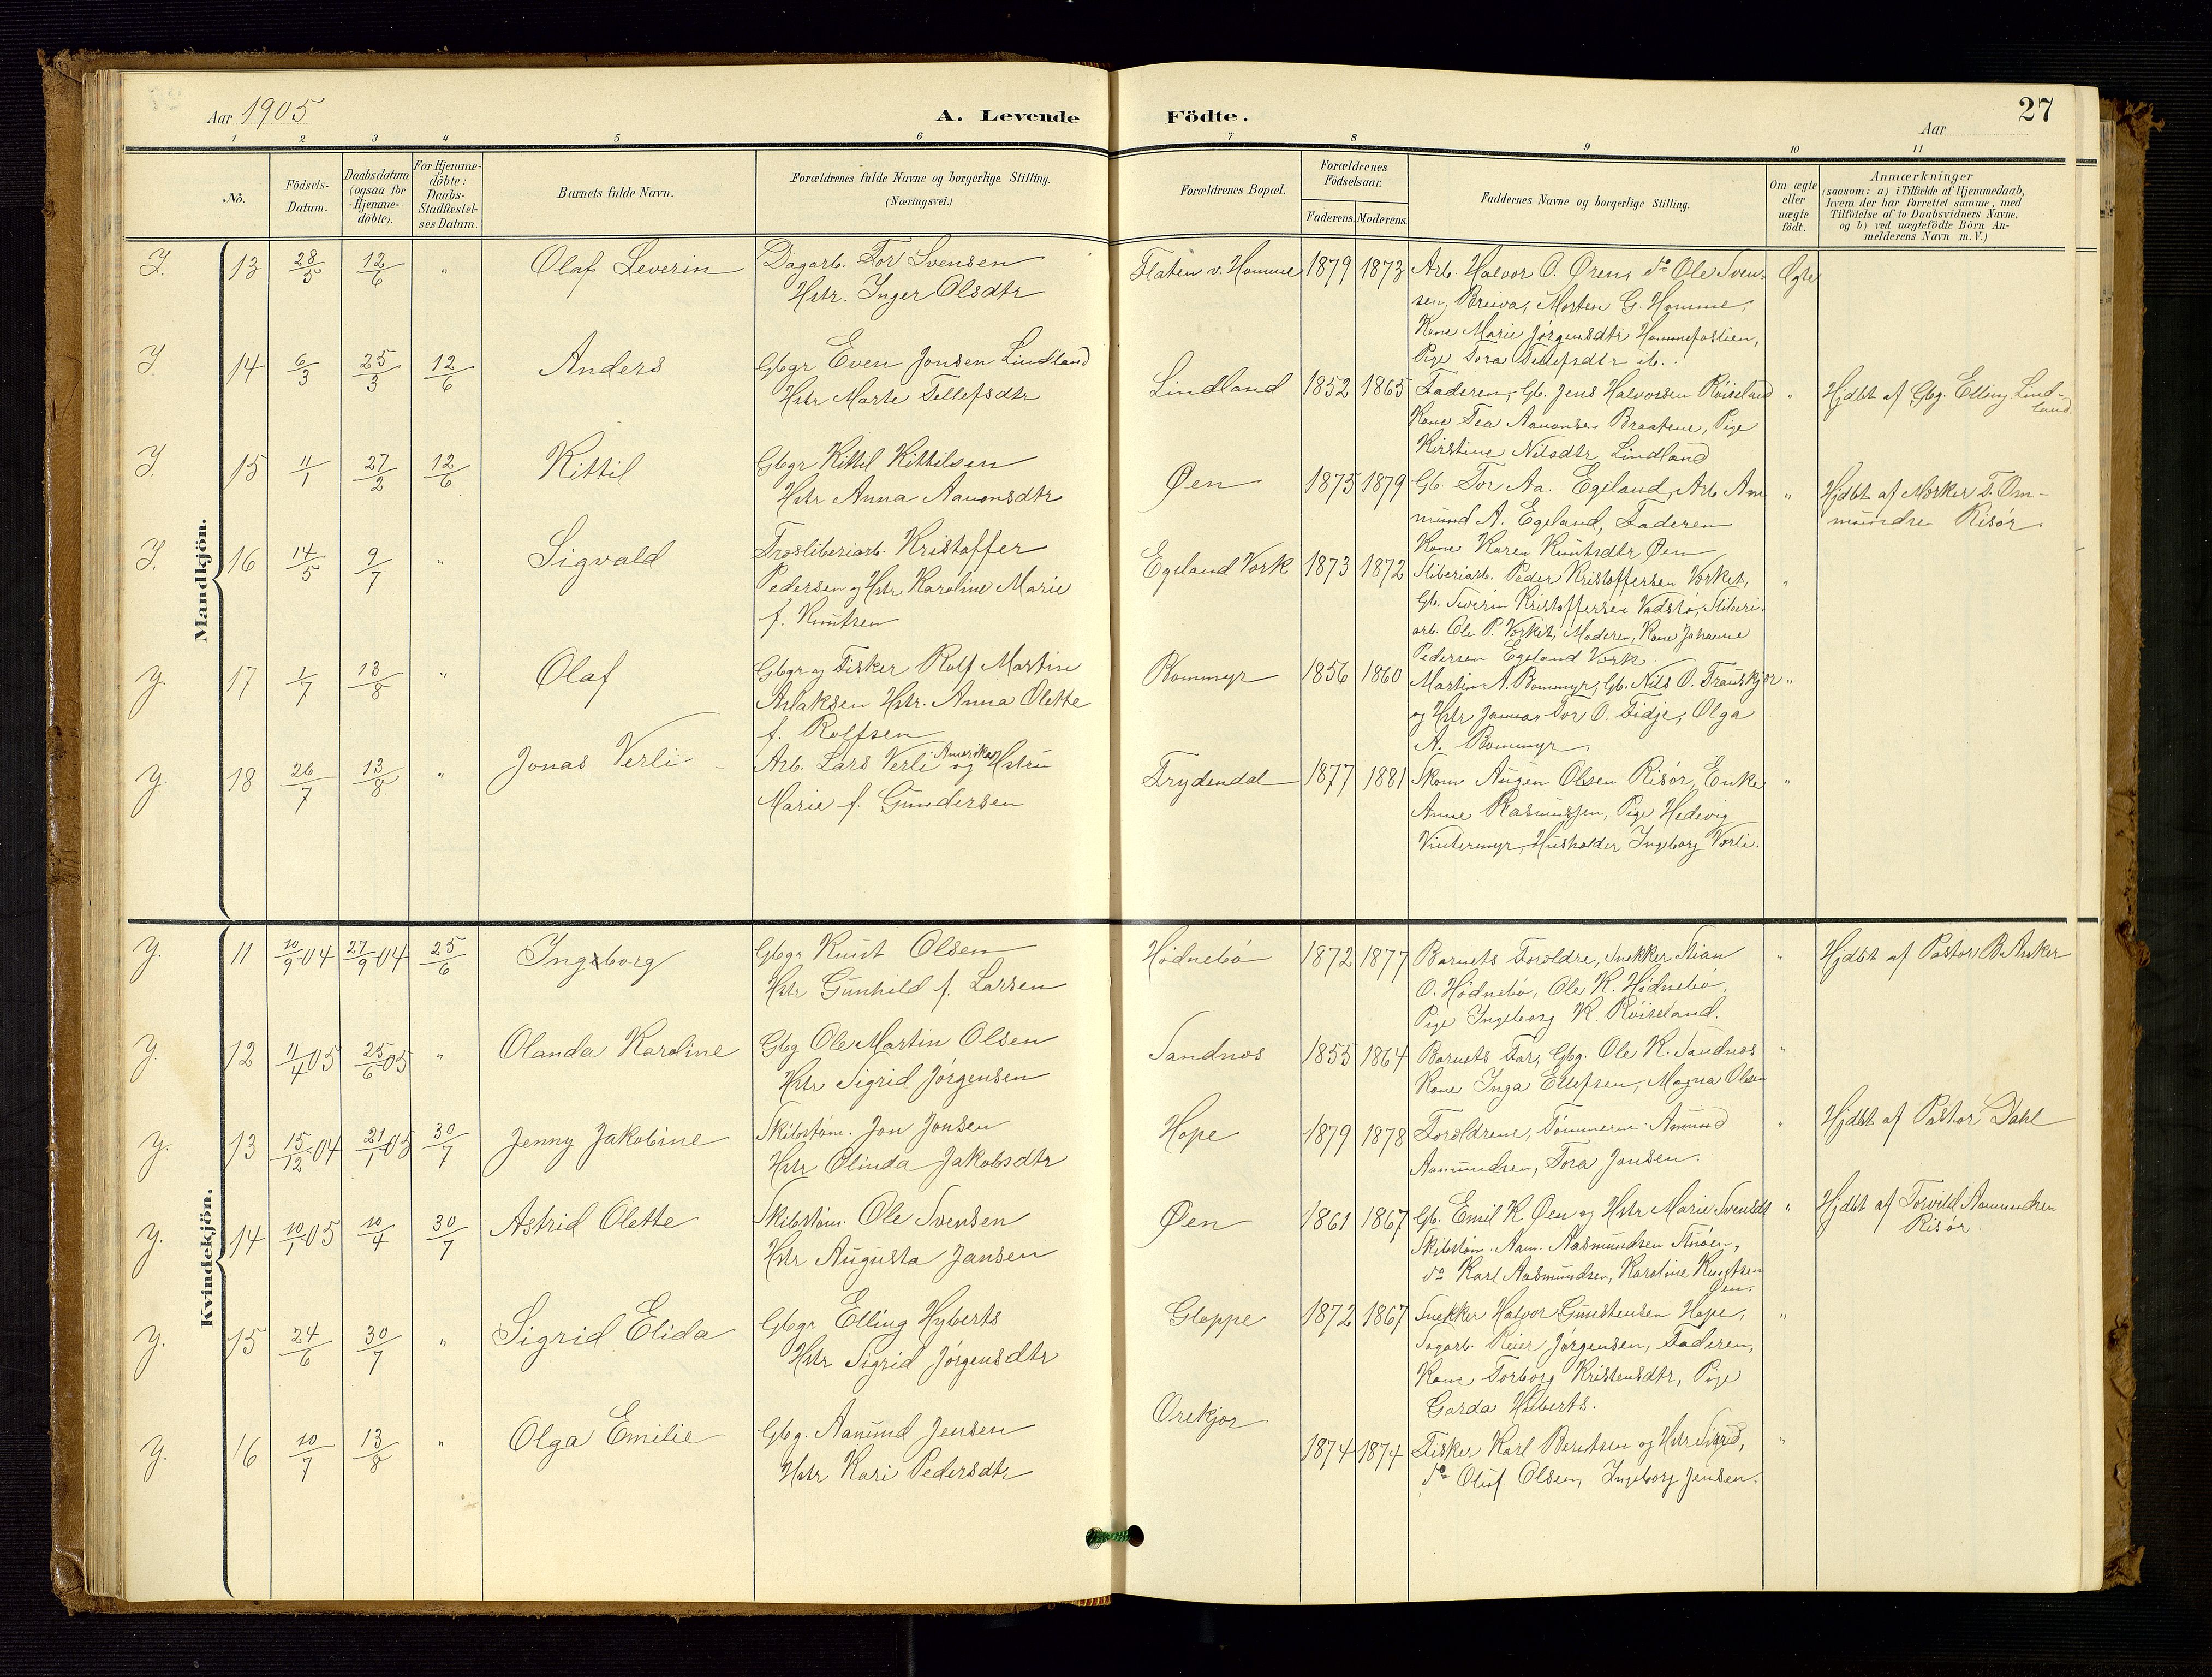 Aar 1905
A. Levende
Födte.
Aar
27
1 2 3 4 5 6 7 8 9 10 11
No.
Födsels-Datum.
Daabsdatum (ogsaa for Hjemme-döbte).
For Hjemme-döbte: Daabs-Stadfæstel-ses Datum.
Barnets fulde Navn.
Forældrenes fulde Navne og borgerlige Stilling. (Næringsvei.)
Forældrenes Bopæl.
Forældrenes Födselsaar.
Faderens. Moderens.
Faddernes Navne og borgerlige Stilling.
Om ægte eller uægte födt.
Anmærkninger
(saasom: a) i Tilfælde af Hjemmedaab,
hvem der har forrettet samme, med
Tilföielse af to Daabsvidners Navne,
og b) ved uægtefödte Börn An-
melderens Navn m.V.)
Mandkjön.
J. 13 28/5 12/6 " Olaf Severin
Dagarb. Tor Svensen
Hstr. Inger Olsdtr
Flaten v. Homme 1879 1873
Arb. Halvor O. Øren, do Ole Sven-
sen, Breiva, Morten G. Homme,
Kone Marie Jørgensdtr Hommefostien,
Pige Tora Tellefsdtr ib.
Ægte
J. 14 6/3 25/3 12/6 Anders
Gbgr Even Jonsen Lindland
Hstr Marte Tellefsdtr
Lindland 1852 1865
Faderen, Gb. Jens Halvorsen Røiseland
Kone Tea Aanonsen Braatene, Pige
Kirstine Nilsdtr Lindland
"
Hjdbt af Gbg. Elling Lind-
land.
J. 15 11/1 27/2 12/6 Kittil
Gbgr Kittil Kittilsen
Hstr Anna Aanonsdtr
Øen 1875 1879
Gb. Tor Aa. Egeland, Arb. Am
mund A. Egeland, Faderen
Kone Karen Knutsdtr Øen
"
Hjdbt af Mørker T. Om-
mundsen Risør
J. 16 14/5 9/7 " Sigvald
Træsliberiarb. Kristoffer
Pedersen og Hstr Karoline Marie
f. Knutsen
Egeland Verk 1873 1872
Sliberiarb. Peder Kristoffersen Verket,
Gb. Severin Kristoffersen Vadstø, Sliberi-
arb. Ole P. Verket, Moderen, Kone Johanne
Pedersen Egeland Verk.
"
y. 17 1/7 13/8 " Olaf
Gbgr og Fisker Rolf Martin
Aslaksen Hstr. Anna Olette
f. Rolfsen
Bommyr 1856 1860
Martin A. Bommyr, Gb. Nils O. Frauskjør
og Hstr Tor O. Fidje, Olga
A. Bommyr.
"
y. 18 26/7 13/8 " Jonas Verli
Arb. Lars Verli Amerika og Hstru
Marie f. Gundersen
Frydendal 1877 1881
Skom. Augen Olsen Risør, Enke
Anne Rasmussen, Pige Hedevig
Vintermyr, Husholder Ingeborg Verli.
"
Kvindekjön.
y. 11 10/9-04 27/9-04 25/6 Ingeborg
Gbgr Knut Olsen
Hstr Gunhild f. Larsen
Hødnebø 1872 1877
Barnets Forældre, Snekker Stian
O. Hødnebø, Ole K. Hødnebø,
Pige Ingeborg K. Røiseland.
"
Hjdbt af Pastor B. Anker
y. 12 11/4 05 25/6 05 " Olanda Karoline
Gbg Ole Martin Olsen
Hstr Sigrid Jørgensen
Sandnes 1855 1864
Barnets Far, Gbg. Ole K. Sandnes
Kone Inga Ellefsen, Magna Olsen
"
y. 13 15/12-04 21/1-05 30/7 Jenny Jakobine
Skibstøm. Jon Jonsen
Hstr Olinda Jakobsdtr
Hope 1879 1878
Forældrene, Tømmerm. Amund
Aamundsen, Tora Jonsen.
"
Hjdbt af Pastor Dahl
y. 14 10/1-05 10/4 30/7 Astrid Olette
Skibstøm. Ole Svensen
Hstr Augusta Jansen
Øen 1861 1867
Gb. Emil K. Øen og Hstr Marie Svensdtr
Skibstøm. Aam. Aasmundsen
do Karl Aasmundsen, Karoline Knutsen
Øen.
"
Hjdbt af Torvild Aamundsen
Risør.
y. 15 24/6 30/7 " Sigrid Elida
Gbgr Elling Hyberts
Hstr Sigrid Jørgensdtr
Gloppe 1872 1867
Snekker Halvor Gunstensen Hope,
Sagarb. Reier Jørgensen, Faderen,
Kone Torborg Kristensdtr, Pige
Garda Huberts.
"
y. 16 10/7 13/8 " Olga Emilie
Gbg. Aanund Jensen
Hstr Kari Pedersdtr
Orekjær 1874 1874
Fisker Karl Berntsen og Hstr Sigrid,
do Oluf Olsen, Ingeborg Jensen.
"